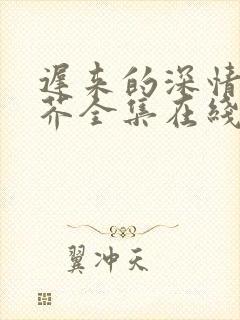 遲來的深情
芥全集在綫
翼冲天